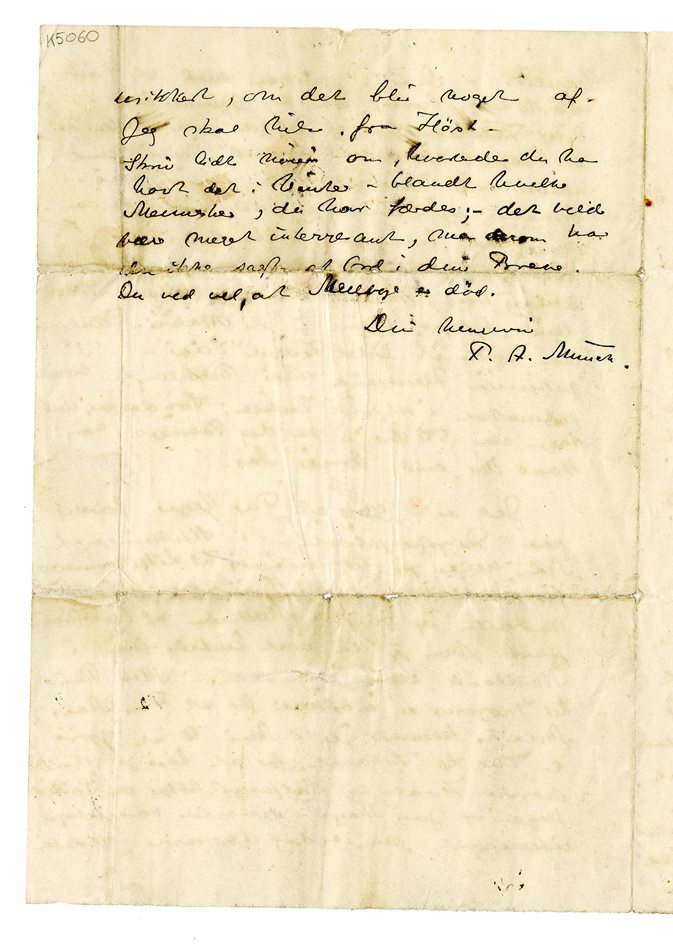 K5060
usikkert, om det blir noget af.
Jeg skal hilse fra Höst.
Skriv lidt om, hvorledes du har
havt det i Vinter – blandt hvilke
Mennesker, du har færdes; – det vilde
være meget interresant, men derom har
du ikke sagt et Ord i dine Breve.
Du ved vel, at er död.
Din hengivne
P. A. Munch.